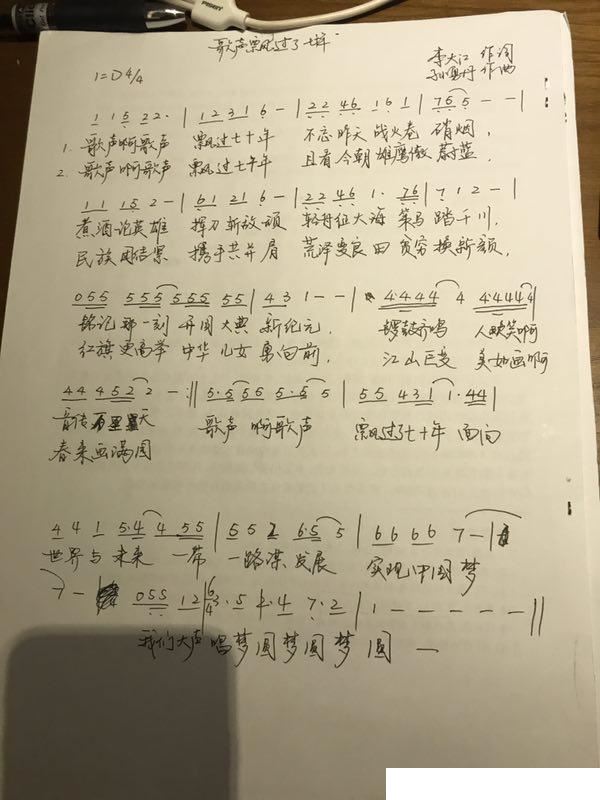 歌声飘过了七十年
李大江 作词
作曲
1=D 4/4
1 1 5 2 2· | 1 2 3 1 6 - | 2 2 4 6 1 6 1 | 7 6 5 - - |
1. 歌声啊歌声 飘过七十年 不忘昨天战火卷硝烟,
2. 歌声啊歌声 飘过七十年 且看今朝雄鹰傲蔚蓝
1 1 1 5 2 - | 6 1 2 1 6 - | 2 2 4 6 1· 7 6 | 7 1 2 - |
煮酒论英雄 挥刀斩敌顽 轻舟征大海 策马踏千川,
民族团结紧 携手共并肩 荒泽变良田 贫穷换新颜,
0 5 5 5 5 5 5 5 5 5 5 | 4 3 1 - - | 4·4 4 4 4 4·4 4 4 4 |
铭记那一刻 开国大典 新纪元, 锣鼓齐鸣 人欢笑啊
红旗更高举 中华儿女 勇向前, 江山巨变 美如画啊
4 4 4 5 2 2 - :|| 5·5 5 5 5·5 5 | 5 5 4 3 1 1·4 4 |
音传百里天
歌声啊歌声 飘过了七十年 面向
春来画满园
4 4 1 5·4 4 5 5 | 5 5 2 6·5 5 | 6 6 6 6 7 - |
世界与未来 一带 一路谋发展 实现中国梦
7 - 0 5 5 1 2 | 6/4 3·5 2·4 7·2 | 1 - - - - - ||
我们大声唱梦圆梦圆梦圆 —